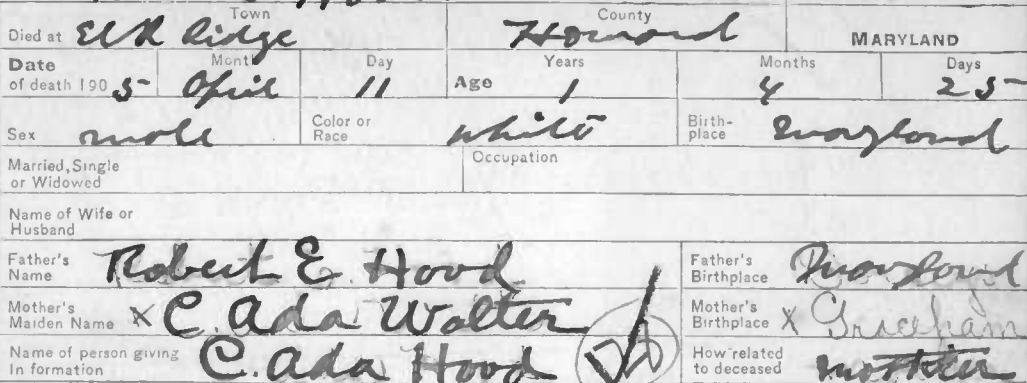 Town County
Died at Elk Ridge Howard MARYLAND
Date Month Day Years Months Days
of death 190 5 April 11 Age 1 4 25
Sex male Color or Race white Birth-place Maryland
Married, Single or Widowed Occupation
Name of Wife or Husband
Father's Name Robert E. Hood Father's Birthplace Maryland
Mother's Maiden Name x C. Ada Walter Mother's Birthplace x
Name of person giving In formation C. Ada Hood How related to deceased mother